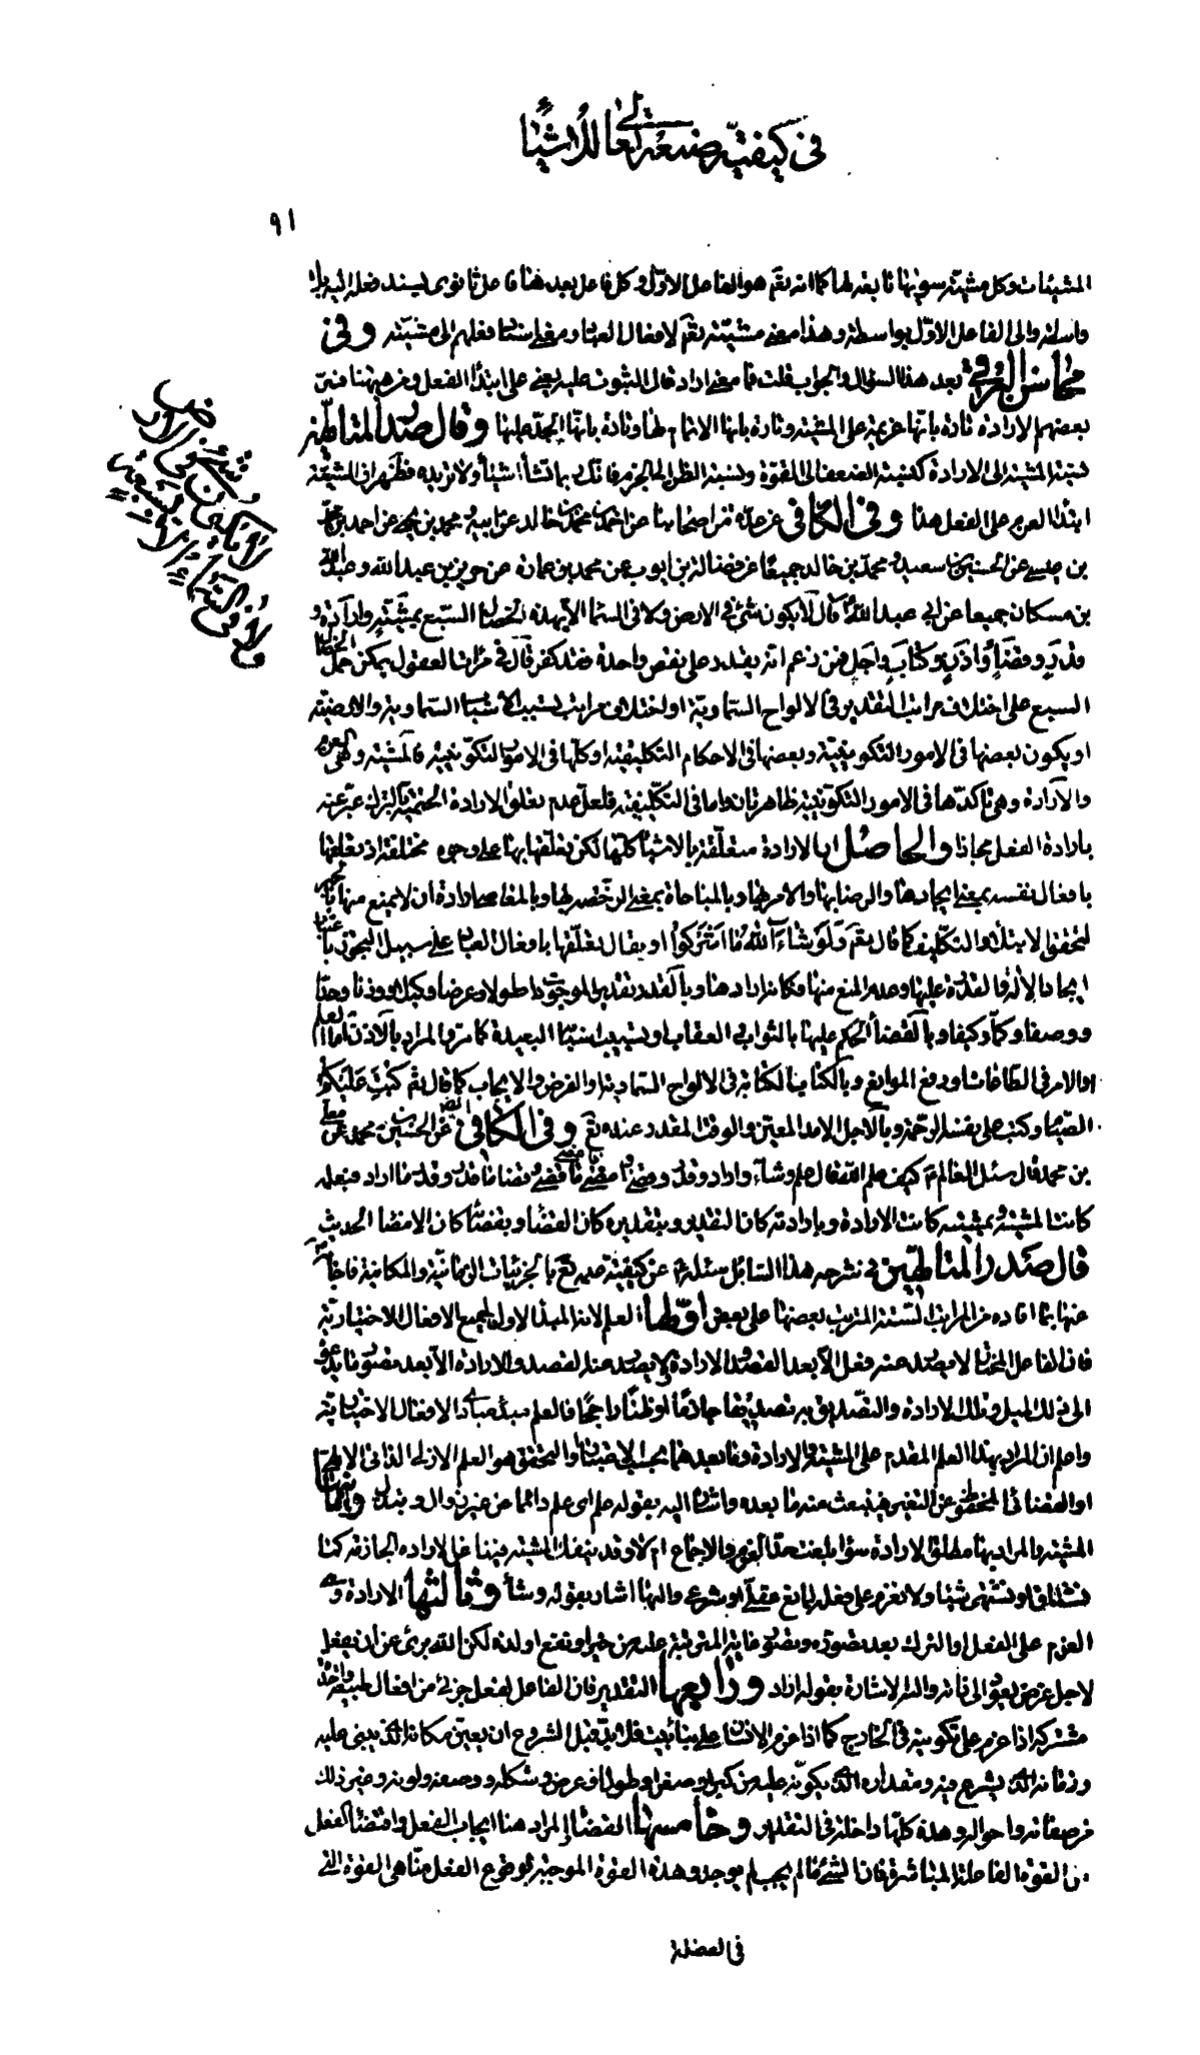 في كيفية صنعه تعالى للاشياء
٩١
المشيئات وكل مشية سويها تابعة لها كما انه تعم هو الفاعل الاول وكل فاعل بعد هنا فاعل ثانوى يسند فعله اليه بلا
واسطة والى الفاعل الاول بواسطة وهذا معنى مشيته تعم لافعال العباد ومعنى اسناد فعلهم الى مشيته وفي
محاسن البرقي بعد هذا السؤال والجواب قلت فما معنى اراد قال الثبوت عليه يعنى على ابتداء الفعل ومن هيهنا فسر
بعضهم الارادة تارة بانها عزيمة على المشية وتارة بانها الاتمام لها وتارة بانها الجد عليها وقال صدر المتالهين
نسبة المشية الى الارادة كنسبة الضعف الى القوة ونسبة الظن الى الجزم فانك ربما تشاء اشياء ولا تريده فظهر ان المشية
ابتداء العزم على الفعل هذا وفي الكافي عن عدة من اصحابنا عن احمد بن محمد بن خالد عن ابيه ومحمد بن يحيى عن احمد بن محمد
بن عيسى عن الحسين بن سعيد ومحمد بن خالد جميعا عن فضالة بن ايوب عن محمد بن عمارة عن حريز بن عبد الله وعبد الله
بن مسكان جميعا عن ابي عبد الله قال لا يكون شئ في الارض ولا في السماء الا بهذه الخصال السبع بمشية وارادة و
قدر وقضاء واذن وكتاب واجل فمن زعم انه يقدر على نقص واحدة فقد كفر قال في مرات العقول يمكن حمل الخصال
السبع على اختلاف مراتب التقدير في الالواح السماوية او اختلاف مراتب تسبيب الاسباب السماوية والارضية
او يكون بعضها في الامور التكوينية وبعضها في الاحكام التكليفية او كلها في الامور التكوينية فالمشية وهي العزم
والارادة وهي تاكدها في الامور التكوينية ظاهرتان واما في التكليفية فلعل عدم تعلق الارادة الحتمية بالترك عبر عنه
بارادة الفعل مجازا والحاصل ان الارادة متعلقة بالاشياء كلها لكن تعلقها بها على وجوه مختلفة اذ تعلقها
بافعال نفسه بمعنى ايجادها والرضا بها والامر بها وبالمباحات بمعنى الرخصة بها وبالمعاصى ارادة ان لا يمنع منها بالجبر
لتحقق الابتلاء والتكليف كما قال تعم ولو شاء الله ما اشركوا او يقال تعلقها بافعال العباد على سبيل التجوز باعتبار
ايجاد الآلة والقدرة عليها وعدم المنع منها فكانه ارادها وبالقدر تقدير الموجودات طولا وعرضا وكيلا ووزنا وحدا
ووصفا وكما وكيفا وبالقضاء الحكم عليها بالثواب والعقاب او تسبيب اسبابها البعيدة كما مر والمراد بالاذن اما العلم
او الامر في الطاعات او رفع الموانع وبالكتاب الكتابة في الالواح السماوية او الفرض والايجاب كما قال تعم كتب عليكم
الصيام وكتب على نفسه الرحمة وبالاجل الامد المعين والوقت المقدر عنده تع وفي الكافي عن الحسين بن محمد عن معلى
بن محمد قال سئل العالم كيف علم الله قال علم وشاء واراد وقدر وقضى وامضى فامضى ما قضى وقضى ما قدر وقدر ما اراد فبعلمه
كانت المشية وبمشيته كانت الارادة وبارادته كان التقدير وبتقديره كان القضاء وبقضائه كان الامضاء الحديث
قال صدر المتالهين في شرحه هذا السائل سئله عن كيفية علمه تع بالجزئيات الزمانية والمكانية فاجاب
عنها بما افاده من المراتب الستة المترتب بعضها على بعض اولها العلم لانه المبدء الاول لجميع الافعال الاختيارية
فان الفاعل المختار لا يصدر عنه فعل الا بعد القصد والارادة ولا يصدر عنه القصد والارادة الا بعد تصور ما يدعوه
الى ذلك الميل وتلك الارادة والتصديق به تصديقا جازما او ظنا راجحا فالعلم مبدء مبادى الافعال الاختيارية
واعلم ان المراد بهذا العلم المقدم على المشية والارادة وما بعدهما بحسب الاعتبار والتحقق هو العلم الازلى الذاتى الالهى
او القضائى المحفوظ عن التغير فينبعث منه ما بعده واشار اليه بقوله علم اى علم دائما من غير زوال وتبدل وثانيها
المشية والمراد بها مطلق الارادة سواء بلغت حد العزم والاجماع ام لا وقد ينفك المشية فينا عن الارادة الجازمة كما
نشتاق او نشتهى شيئا ولا نعزم على فعله لمانع عقلى او شرعى واليها اشار بقوله وشاء وثالثها الارادة وهى
العزم على الفعل او الترك بعد تصوره وتصور غايته المترتبة عليه من خير او نفع او لذة لكن الله برئ عن ان يفعل
لاجل غرض يعود الى ذاته واليه الاشارة بقوله اراد ورابعها التقدير فان الفاعل لفعل جزئى من افعال طبيعة واحدة
مشتركة اذا عزم على تكوينه في الخارج كما اذا عزم الانسان على بناء بيت فلا بد قبل الشروع ان يعين مكانه الذى يبنى عليه
وزمانه الذى يشرع فيه ومقداره الذى يكونه عليه من كبر او صغر او طول او عرض وشكله ووضعه ولونه وغير ذلك
من صفاته واحواله وهذه كلها داخلة في التقدير وخامسها القضاء والمراد هنا ايجاب الفعل واقتضاء الفعل
من القوة الفاعلة المباشرة فان الشئ ما لم يجب لم يوجد وهذه القوة الموجبة لوقوع الفعل منا هي القوة التى
في العضلة